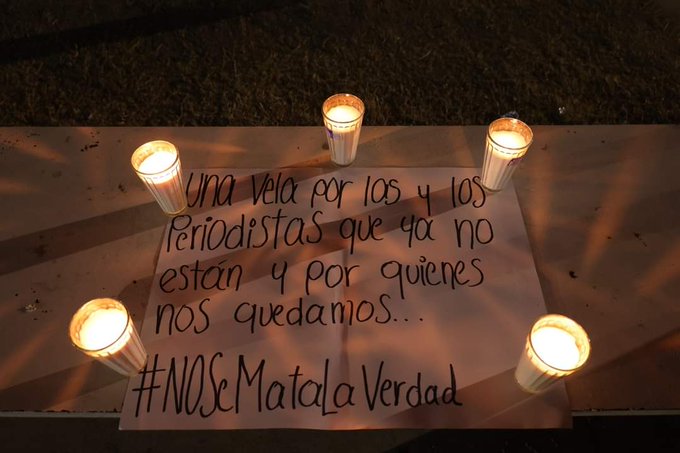 Una vela por los y los
Periodistas que ya no
están y por quienes
nos quedamos...
#NOSeMataLaVerdad